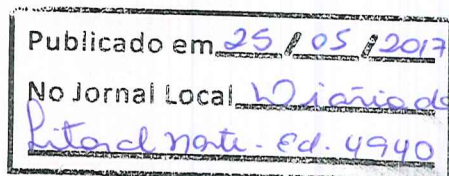 Publicado em 25 / 05 / 2017
No Jornal Local Diário do
Litoral Norte - Ed. 4940